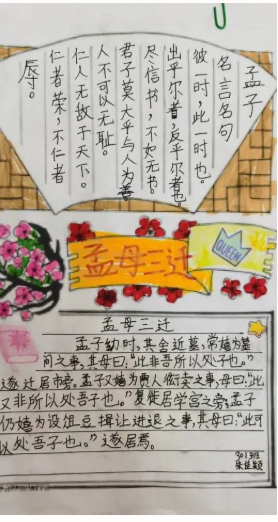 孟子
名言名句
彼一时，此一时也。
出乎尔者，反乎尔者也。
尽信书，不如无书。
君子莫大乎与人为善
人不可以无耻。
仁人无敌于天下。
仁者荣，不仁者
辱。
孟母三迁
QUEEN
孟母三迁
孟子幼时，其舍近墓，常嬉为墓
间之事，其母曰：“此非吾所以处子也。”
遂迁居市旁。孟子又嬉为贾人衒卖之事，母曰：“此
又非所以处吾子也。”复徙居学宫之旁。孟子
仍嬉为设俎豆揖让进退之事，其母曰：“此可
以处吾子也。”遂居焉。
901班
朱佳颖